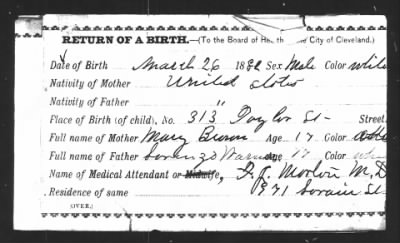 RETURN OF A BIRTH.—(To the Board of Health City of Cleveland.)
Date of Birth March 26 188 Sex Male Color white
Nativity of Mother United States
Nativity of Father "
Place of Birth (of child), No. 313 Taylor St- Street
Full name of Mother Mary Brown Age 17 Color
Full name of Father Lorenzo Age 19 Color
Name of Medical Attendant or Midwife, F. J. Morton M.D
Residence of same 1971 Lorain St
(OVER.)